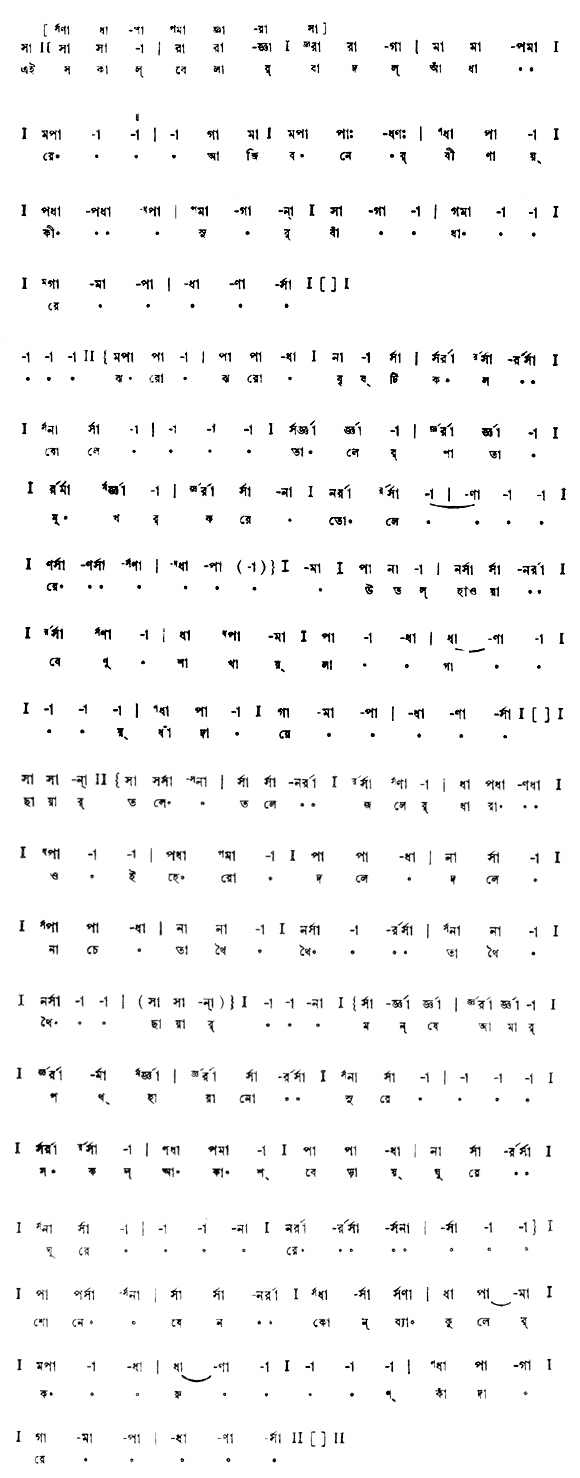 [ র্সণা ধা -পা পমা জ্ঞা -রা সা ]
সা II { সা সা -া | রা রা -জ্ঞা I জ্ঞরা রা -গা | মা মা -পমা I
এই স কা ল্ বে লা র্ বা দ ল্ আঁ ধা • •
I মপা -া -া | -া গা মা I মপা পাঃ -ধণঃ | ণধা পা -া I
রে • • • • আ জি ব • নে • র্ বী ণা য়্
I পধা -পধা -ধপা | পমা -গা -না্ I সা -গা -া | গমা -া -া I
কী • • • • সু • র্ বাঁ • • ধা • • •
I মগা -মা -পা | -ধা -ণা -র্সা I [ ] I
রে • • • • •
-া -া -া II { মপা পা -া | পা পা -ধা I না -া র্সা | র্সর্রা র্রর্সা -র্রর্সা I
• • • ঝ • রো • ঝ রো • বৃ ষ্ টি ক • ল • •
I র্সনা র্সা -া | -া -া -া I র্সর্জ্ঞা র্জ্ঞা -া | র্জ্ঞর্রা র্জ্ঞা -া I
রো লে • • • • তা • লে র্ পা তা •
I র্রর্মা র্মর্জ্ঞা -া | র্জ্ঞর্রা র্সা -না I নর্রা র্রর্সা -া | -ণা -া -া I
মু • খ র্ ক রে • তো • লে • • • •
I ণর্সা -ণর্সা -র্সণা | -ণধা -পা (-া)} I -মা I পা না -া | নর্সা র্সা -নর্রা I
রে • • • • • • • উ ত ল্ হাও য়া • •
I র্রর্সা র্সণা -া | ধা ধপা -মা I পা -া -ধা | ধা -ণা -া I
বে ণু • শা খা য়্ লা • • গা • •
I -া -া -া | ণধা পা -া I গা -মা -পা | -ধা -ণা -র্সা I [ ] I
• • য়্ ধাঁ ধা • য়ে • • • • •
সা সা -না্ II { সা সর্সা -র্সনা | র্সা র্সা -নর্রা I র্রর্সা র্সণা -া | ধা পধা -ণধা I
ছা য়া র্ ত লে • • ত লে • • জ লে র্ ধা রা • • •
I ধপা -া -া | পধা পমা -া I পা পা -ধা | না র্সা -া I
ও • ই হে • রো • দ লে • দ লে •
I র্সপা পা -ধা | না না -া I নর্সা -া -র্রর্সা | র্সনা না -া I
না চে • তা থৈ • থৈ • • • • তা থৈ •
I নর্সা -া -া | ( সা সা -না্ )} I -া -া -না I { র্সা -র্জ্ঞা র্জ্ঞা | র্জ্ঞর্রা র্জ্ঞা -া I
থৈ • • • ছা য়া র্ • • • ম ন্ যে আ মা র্
I র্জ্ঞর্রা -র্মা র্মর্জ্ঞা | র্জ্ঞর্রা র্সা -র্রর্সা I র্সনা র্সা -া | -া -া -া I
প থ্ হা রা নো • • সু রে • • • •
I র্সর্রা র্রর্সা -া | পধা পমা -া I পা পা -ধা | না র্সা -র্রর্সা I
স • ক ল্ আ • কা • শ্ বে ড়া য়্ ঘু রে • •
I র্সনা র্সা -া | -া -া -না I নর্রা -র্রর্সা -র্সনা | -র্সা -া -া } I
ঘু রে • • • • রে • • • • • • • •
I পা পর্সা -র্সনা | র্সা র্সা -নর্রা I র্সধা -র্সা র্সণা | ধা পা -মা I
শো নে • • যে ন • • কো ন্ ব্যা • কু লে র্
I মপা -া -ধা | ধা -ণা -া I -া -া -া | ণধা পা -গা I
ক • • • রু • • • • ণ্ কাঁ দা •
I গা -মা -পা | -ধা -ণা -র্সা II [ ] II
রে • • • • •